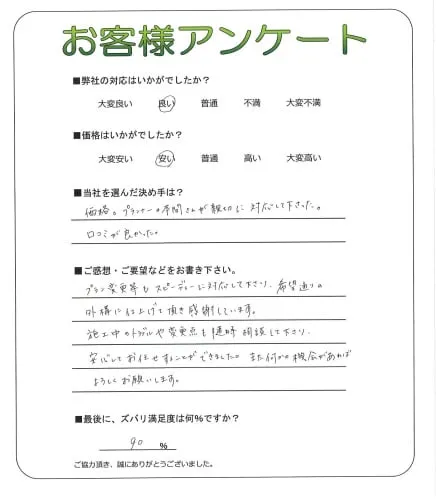 お客様アンケート
■弊社の対応はいかがでしたか？
大変良い 良い 普通 不満 大変不満
■価格はいかがでしたか？
大変安い 安い 普通 高い 大変高い
■当社を選んだ決め手は？
価格。プランナーの本間さんが親切に対応して下さった。
口コミが良かった。
■ご感想・ご要望などをお書き下さい。
プラン変更等もスピーディーに対応して下さり、希望通りの
外構に仕上げて頂き感謝しています。
施工中のトラブルや変更点も随時相談して下さり、
安心してお任せすることができました。また何かの機会があれば
よろしくお願いします。
■最後に、ズバリ満足度は何％ですか？
90 ％
ご協力頂き、誠にありがとうございました。